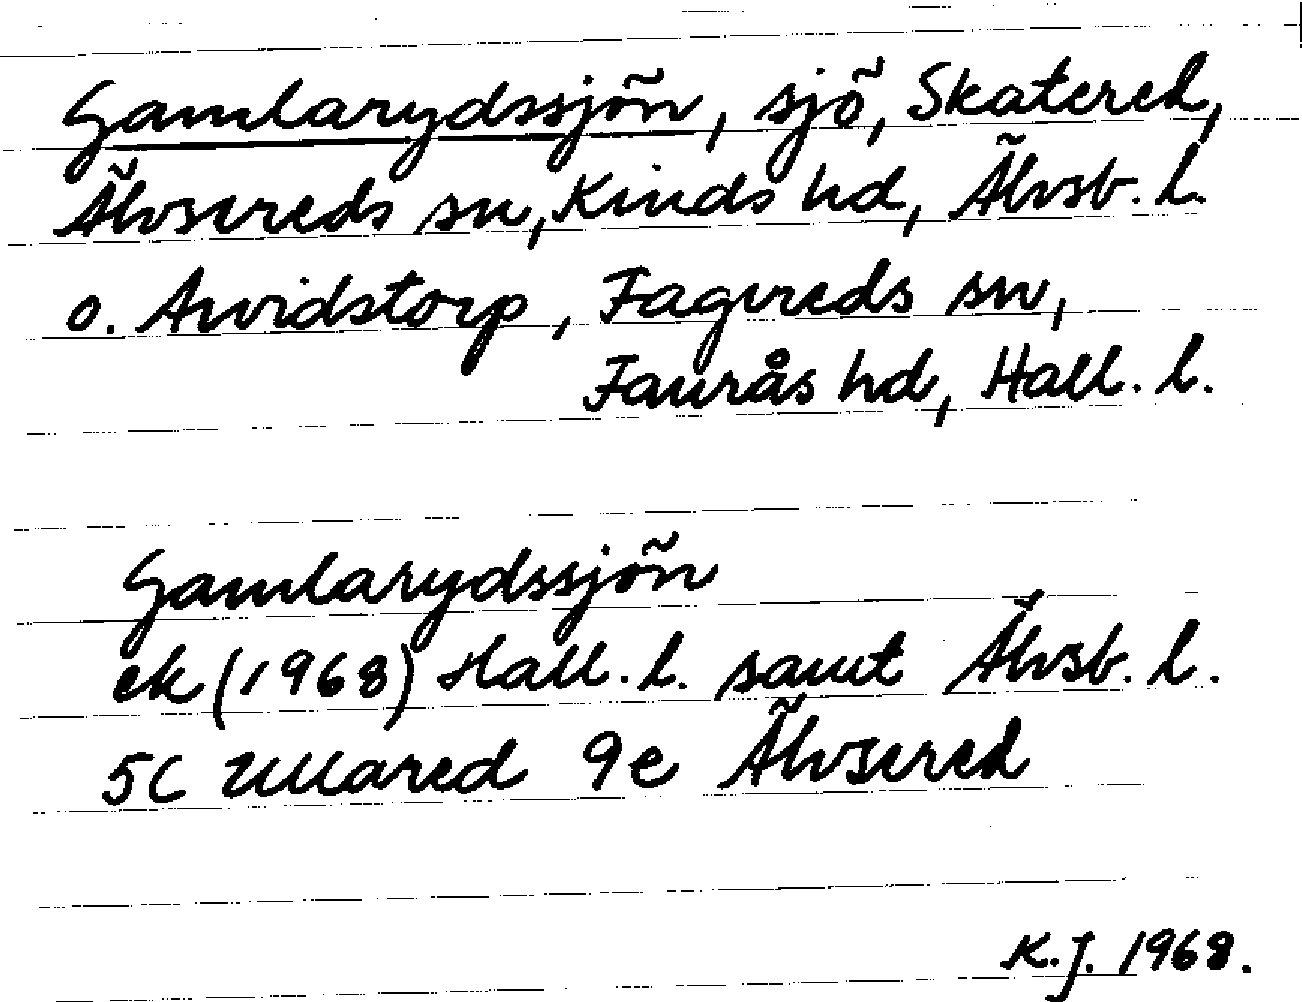 Gamlarydssjön, sjö, Skatered,
Älvsereds sn, Kinds hd, Älvsb. l.
o. Arvidstorp, Fagereds sn,
Faurås hd, Hall. l.
Gamlarydssjön
ek (1968) Hall. l. samt Älvsb. l.
5C Ullared 9e Älvsered
K.J. 1968.